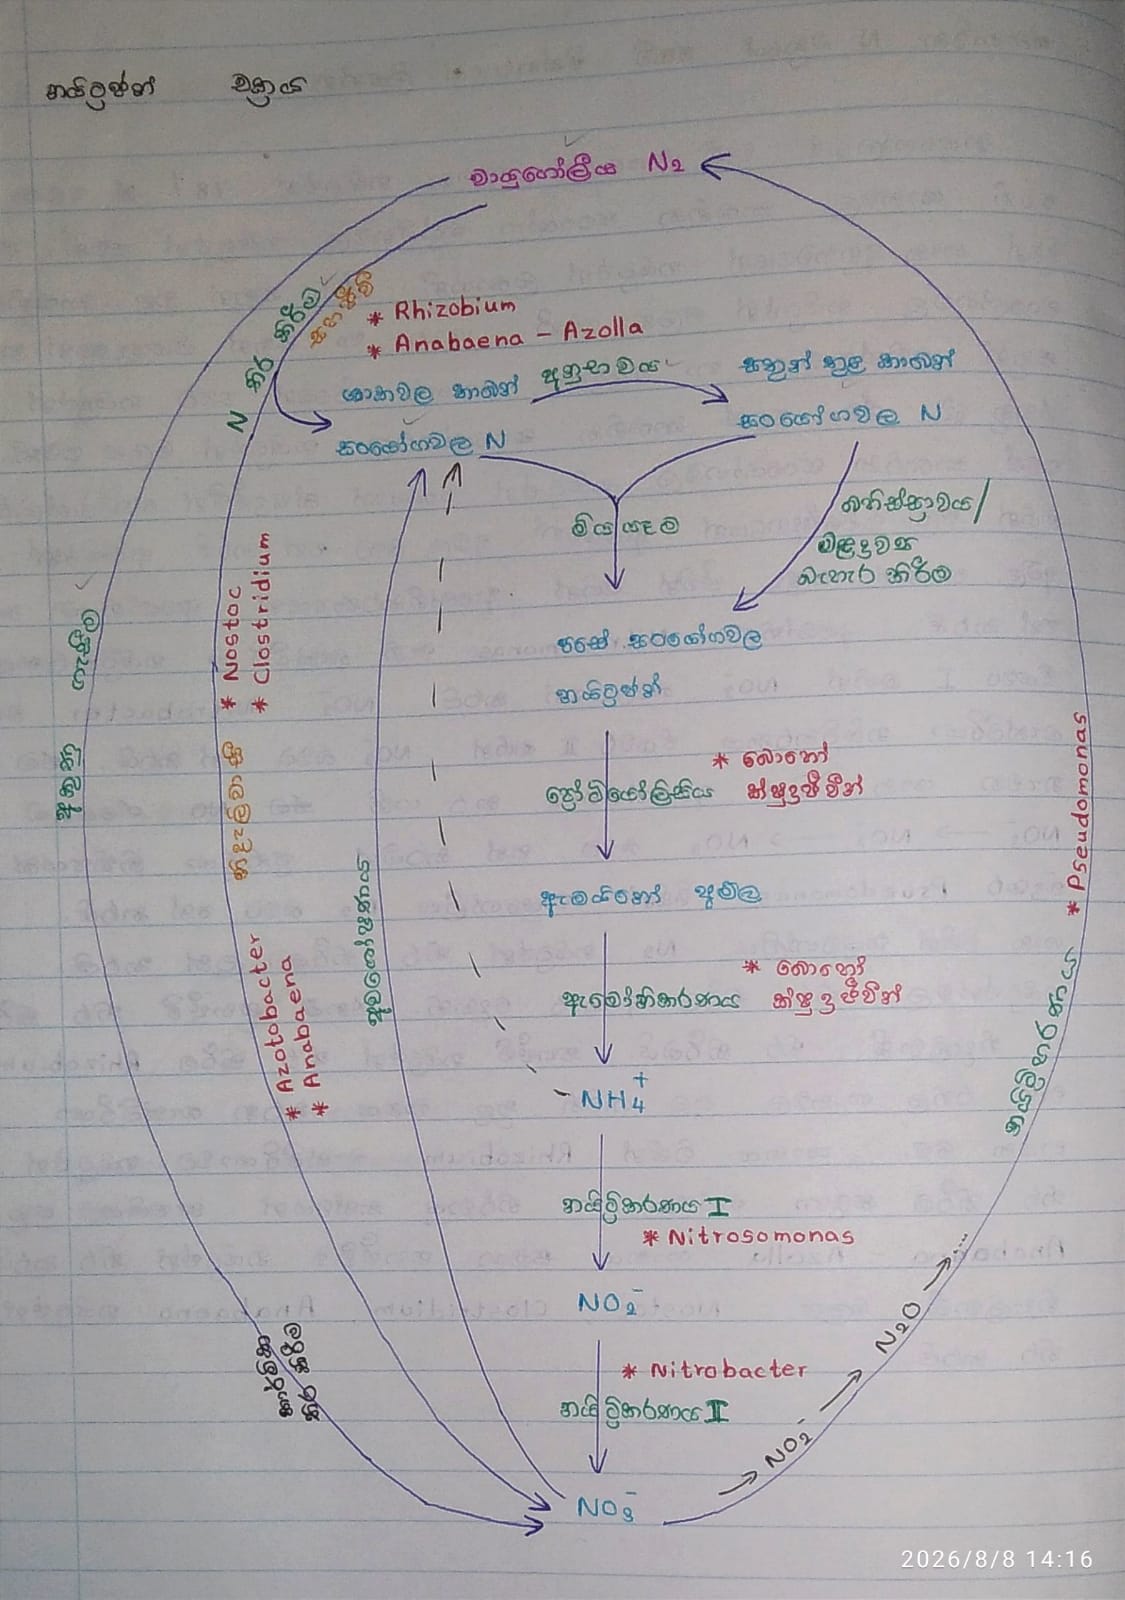 නයිට්‍රජන් චක්‍රය
වායුගෝලීය N₂
N තිර කිරීම
සහජීවී
* Rhizobium
* Anabaena - Azolla
ශාකවල කාබන්
සංයෝගවල N
අනුභවය
සතුන් තුළ කාබන්
සංයෝගවල N
මියයෑම
බහිස්සුාවය/
මළද්‍රව්‍ය
බැහැර කිරීම
පසේ සංයෝගවල
නයිට්‍රජන්
ප්‍රෝටියෝලිසිය
* බොහෝ
ක්ෂුද්‍රජීවීන්
ඇමයිනෝ අම්ල
ඇමෝනිකරණය
* බොහෝ
ක්ෂුද්‍රජීවීන්
NH₄⁺
නයිට්‍රිකරණය I
* Nitrosomonas
NO₂⁻
* Nitrobacter
නයිට්‍රිකරණය II
NO₃⁻
අකුණු ගැසීම
කාර්මික
තිර කිරීම
* Nostoc
* Clostridium
නිදැල්ලේ සිටින
* Azotobacter
* Anabaena
අවශෝෂණය
NO₂⁻
N₂O
නයිට්‍රිහරණය
* Pseudomonas
2026/8/8 14:16